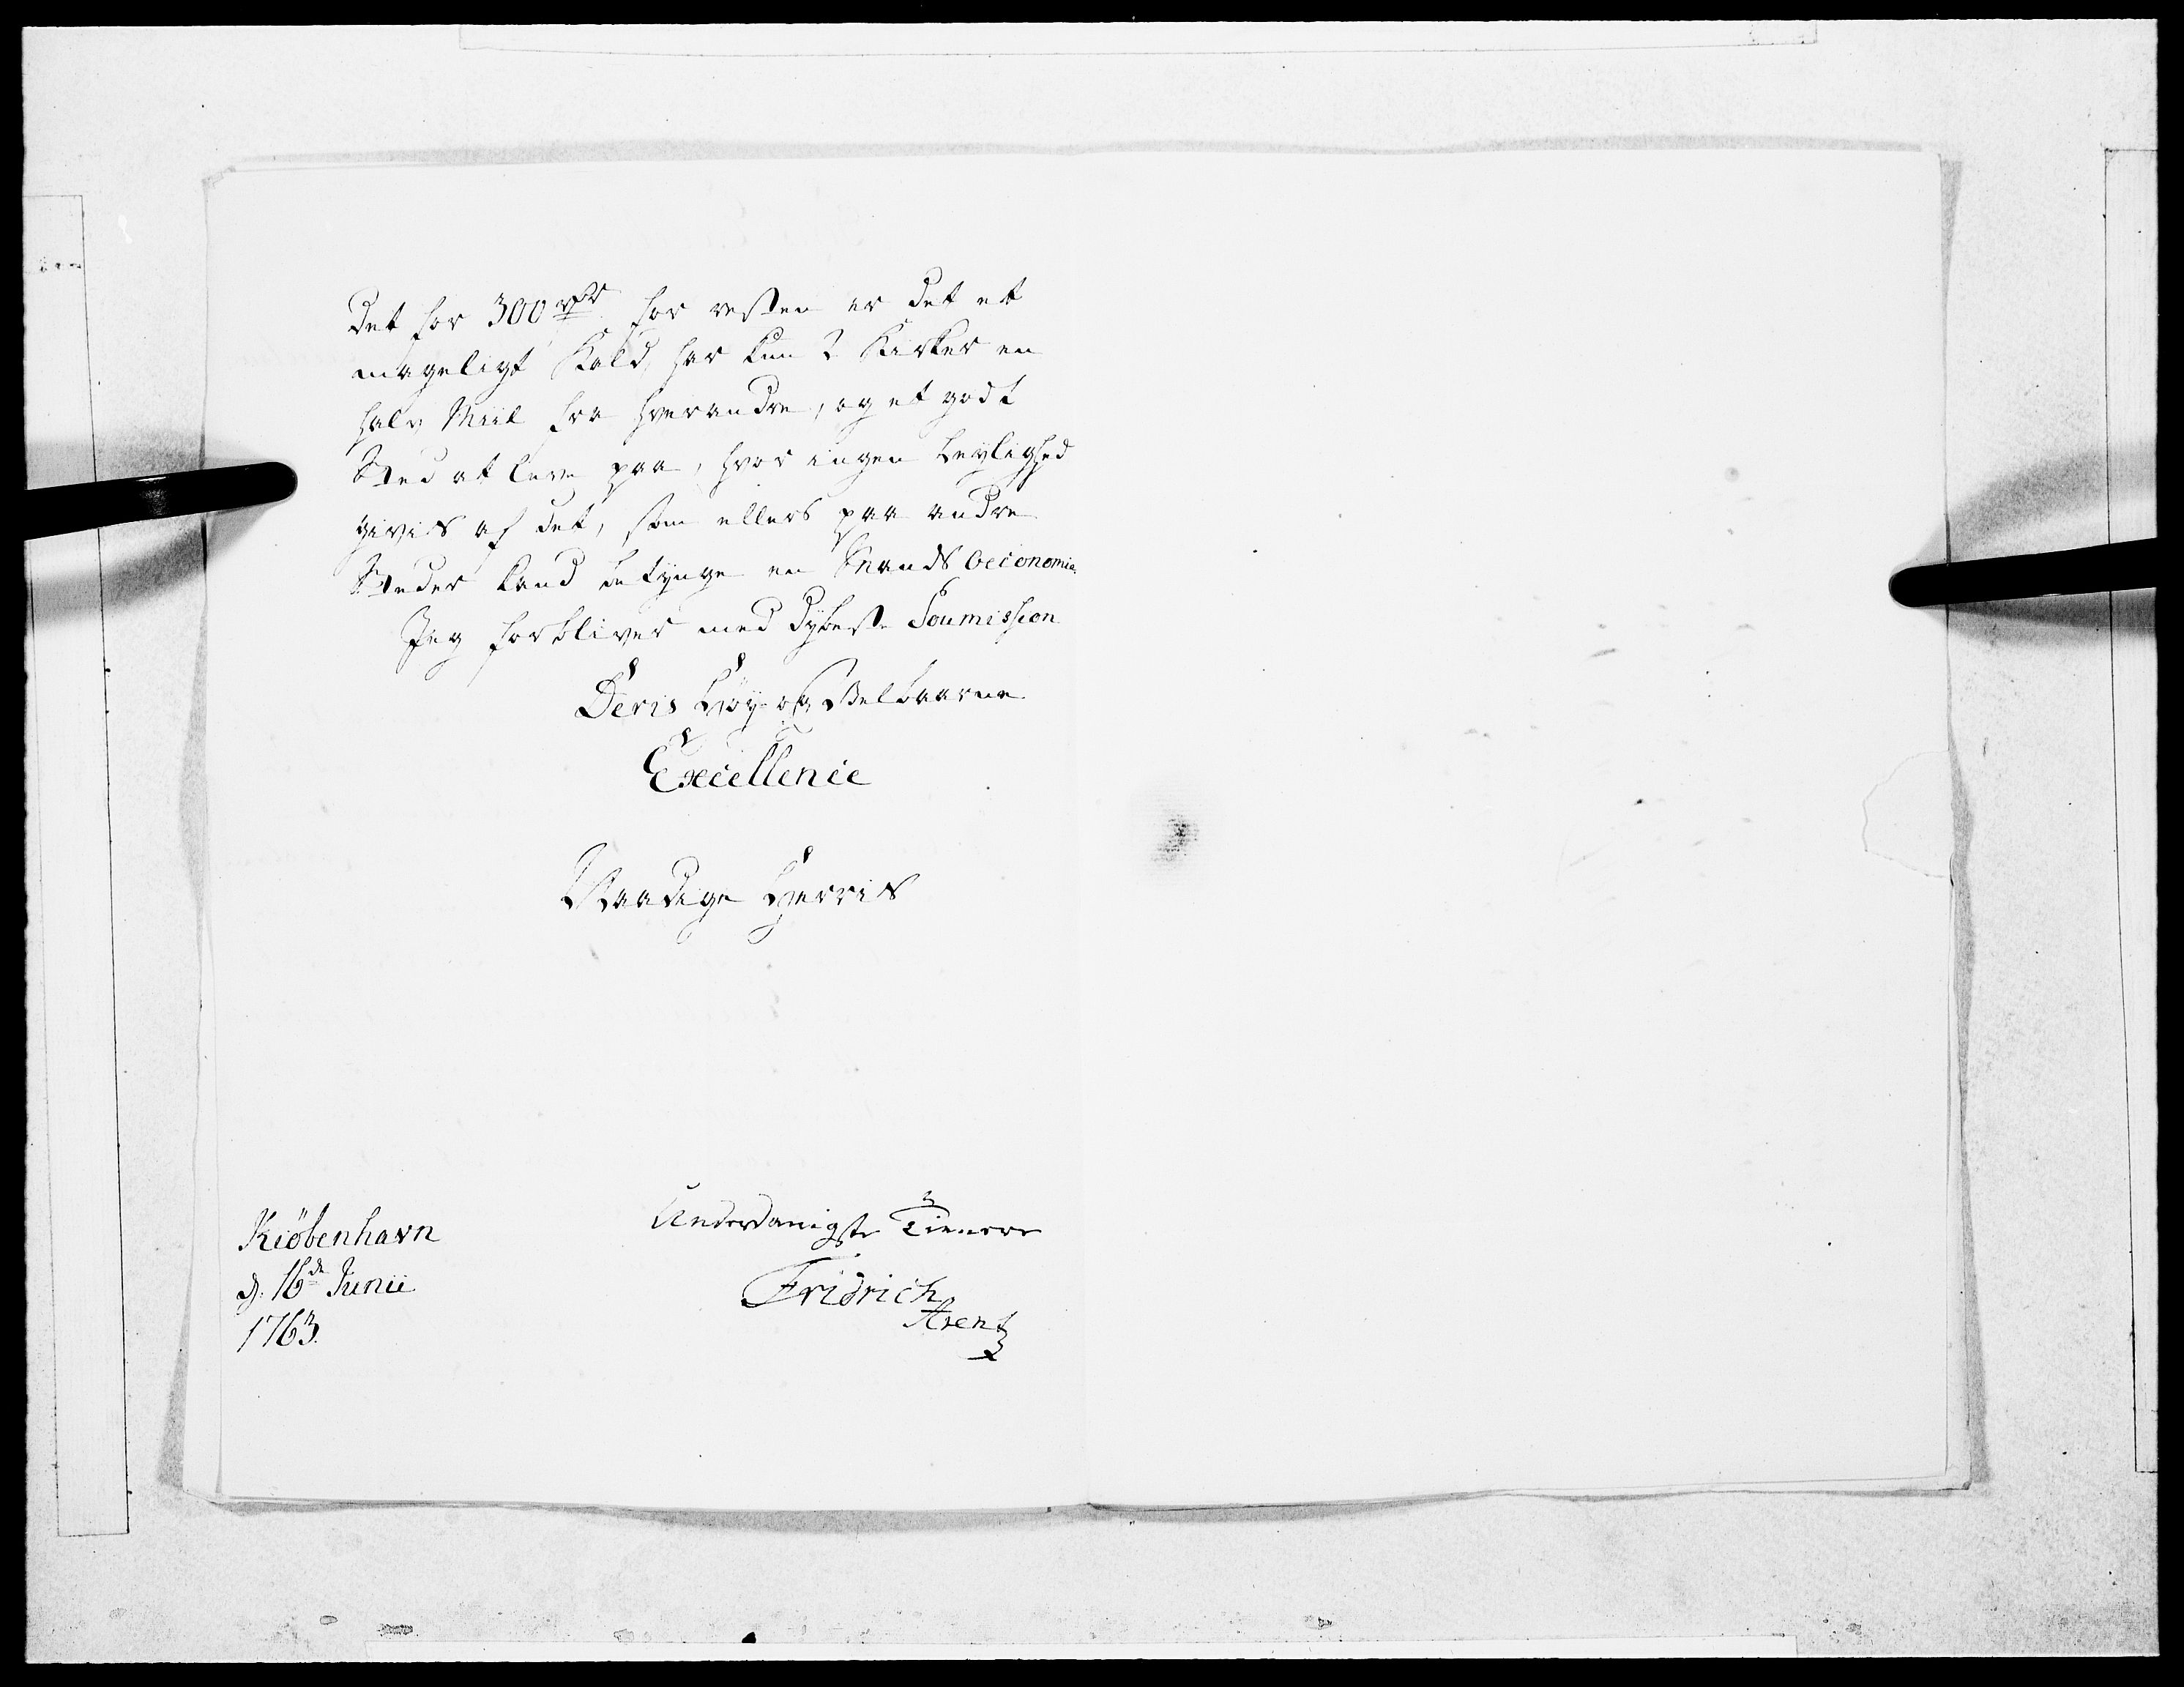 det for 300 rdr for resten er det et
mageligt Kald, har kun 2 Kirker en
halv Miil fra hverandre, og et godt
Sted at leve paa, hvor ingen Leylighed
givis af det, som ellers paa andre
Steder kand betynge en Mands Oeconomie.
Jeg forbliver med dybeste Soumission
Deris Høy- og Velbaarne
Excellence
Naadige Herris
Kiöbenhavn
d. 16de Junii
1763.
Underdanigste Tienere
Fridrich
Arentz